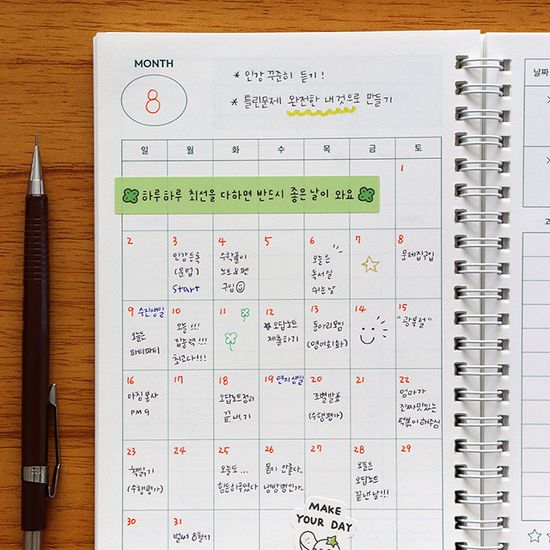 MONTH
8
* 인강 꾸준히 듣기!
* 틀린문제 완전한 내 것으로 만들기
일 월 화 수 목 금 토
1
하루하루 최선을 다하면 반드시 좋은날이 와요
2 3 4 5 6 7 8
인강등록
(문법)
Start
수학풀이
노트&펜
구입
오늘은
독서실
쉬는날
문제집구입
9 수진생일 10 11 12 13 14 15
오늘은
파티파티
오늘!!!
집중력!!!
최고다!!!
오답노트
제출하기
동아리모임
(영어회화)
"광복절"
16 17 18 19 연지생일 20 21 22
아침봉사
PM 9
오답노트정리
끝내기
조별발표
(수행평가)
엄마가
진짜맛있는
떡볶이해주심
23 24 25 26 27 28 29
책읽기
(수행평가)
오늘도...
힘든하루였다
몸이 안좋다..
냉방병인가..
오늘은
오답노트
끝낸날!!!
30 31
벌써 8월의
MAKE
YOUR DAY
날짜